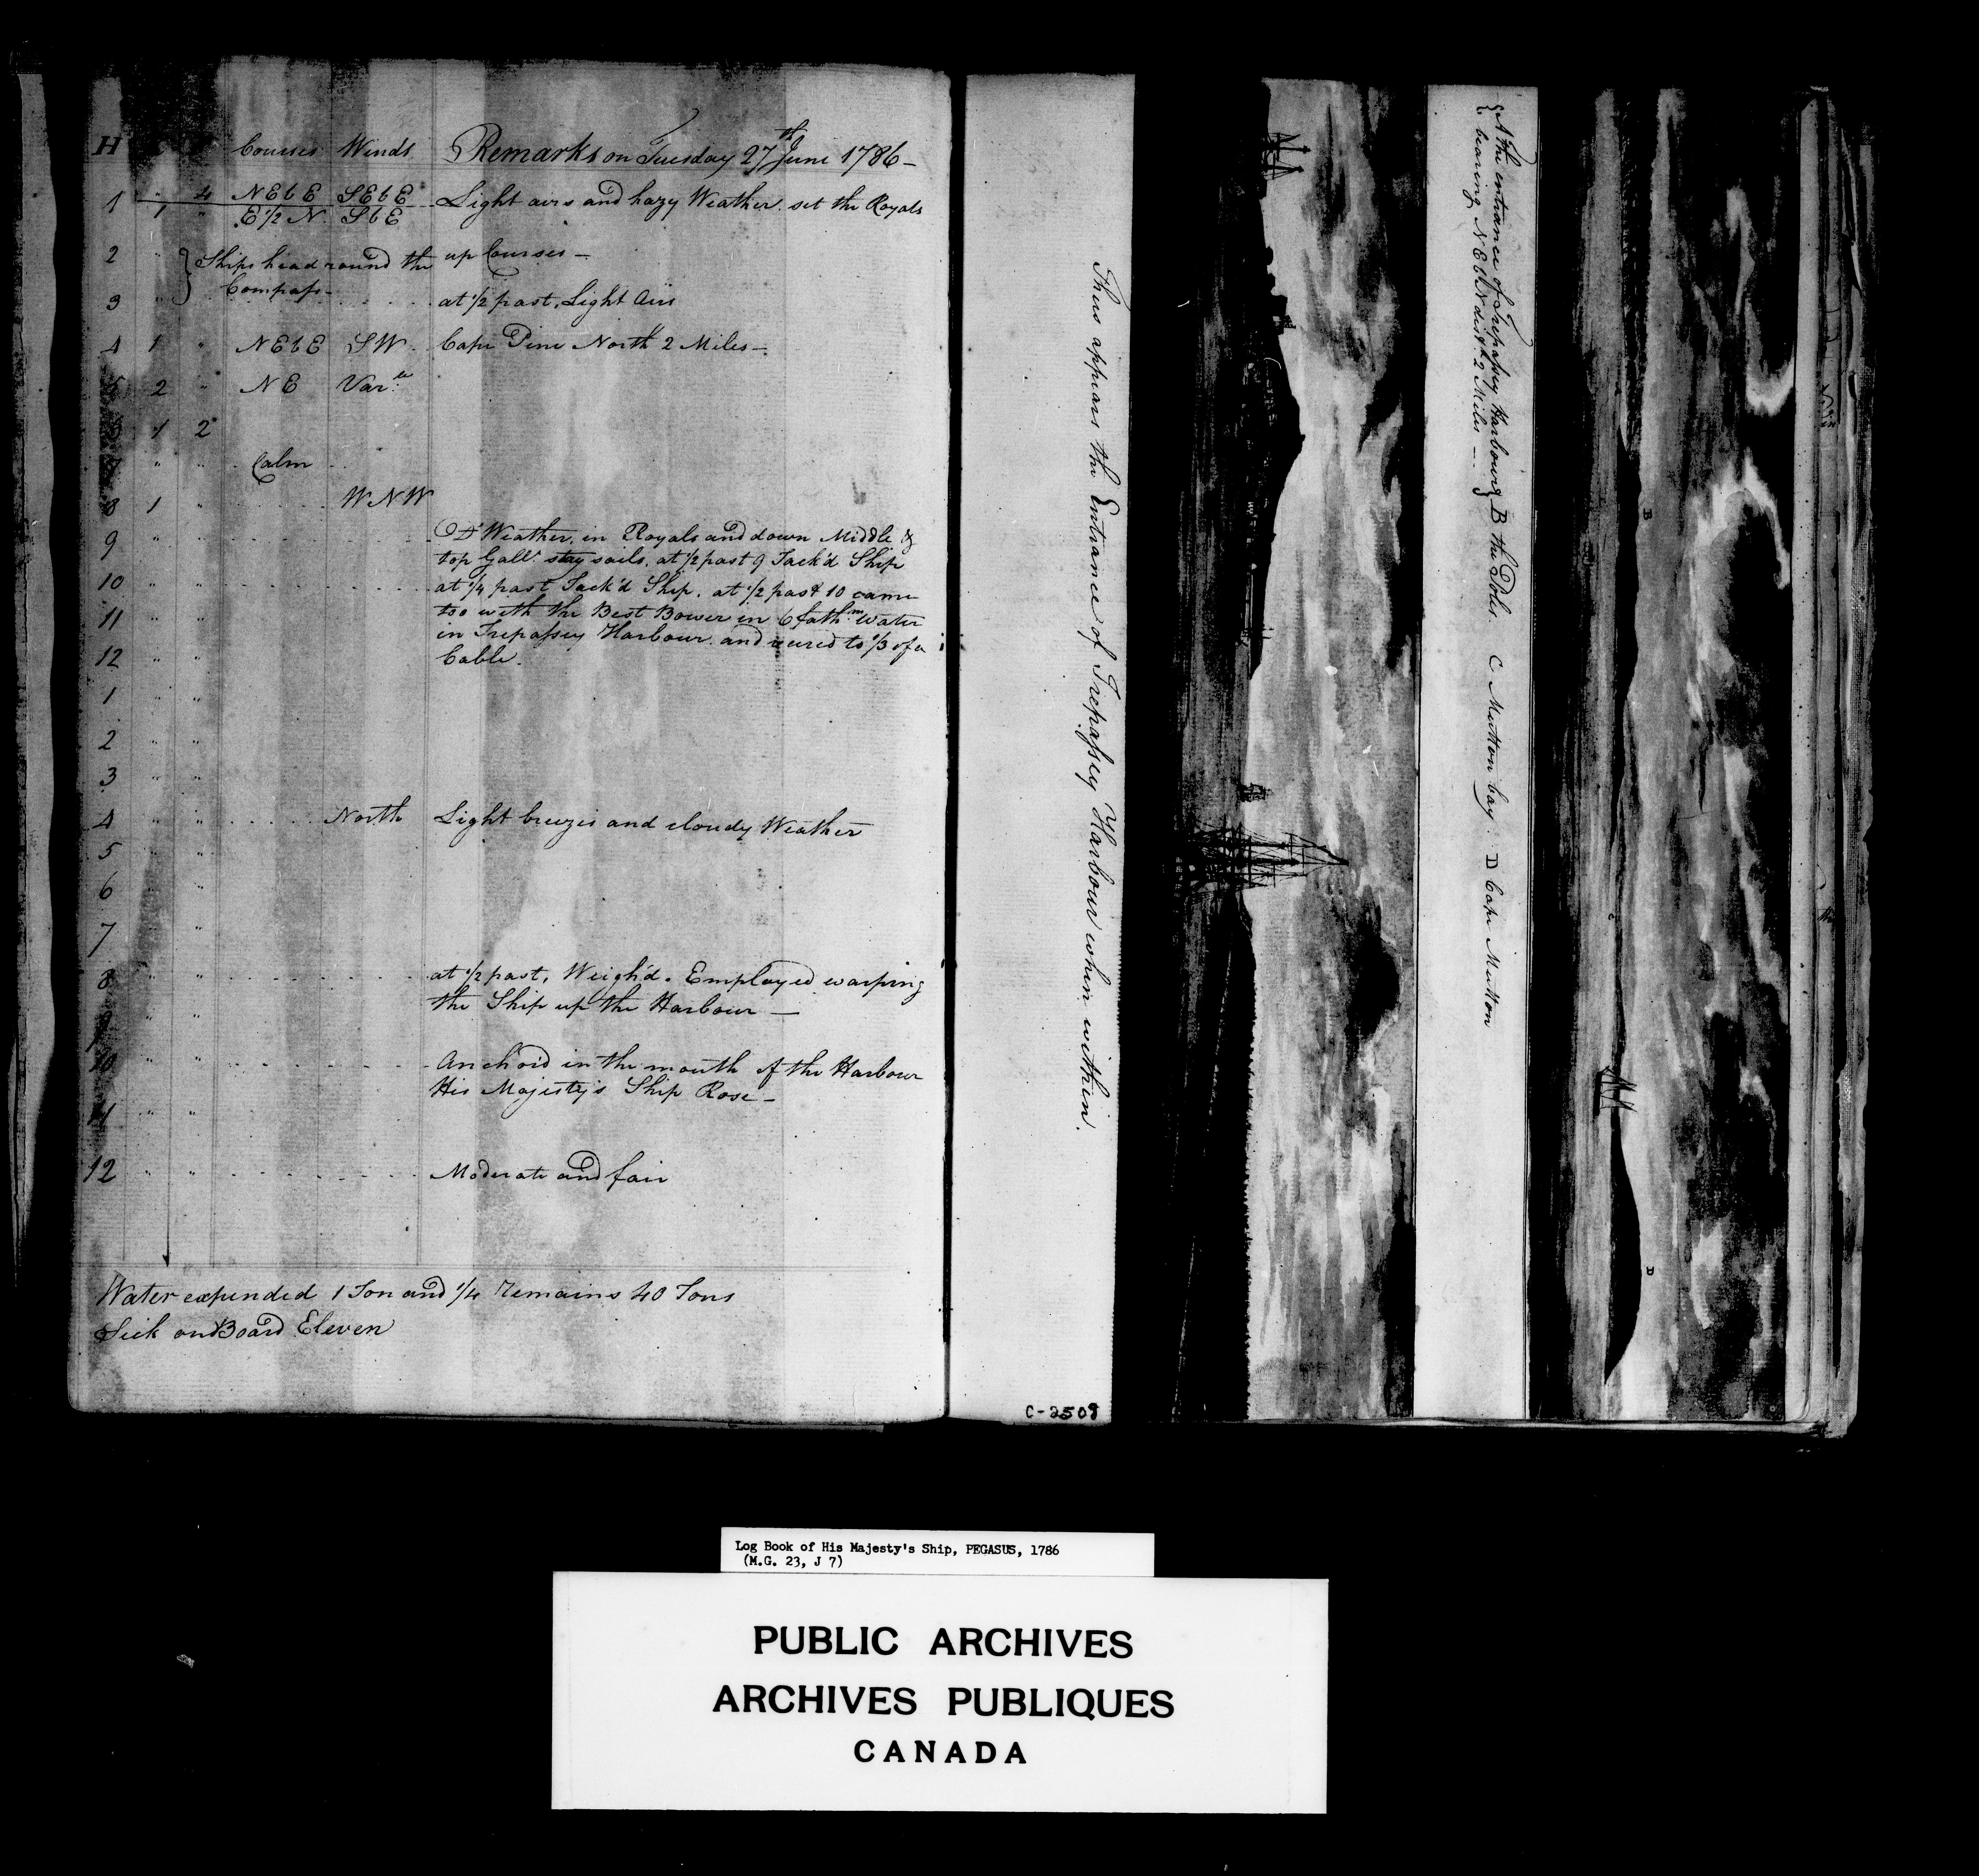 H Courses Winds Remarks on Tuesday 27th June 1786 —
1 " 4 NEbE SEbE Light airs and hazy Weather. set the Royals
1 " E½N SbE
2 } Ships head round the up Courses —
Compass —
3 at ½ past, Light Airs
4 1 " NEbE SW Cape Pine North 2 Miles —
5 2 " NE Var.le
6 1 2
7 " " Calm
8 1 " WNW
9 Do Weather, in Royals and down Middle &
top Gallt stay sails. at ½ past 9 Tack'd Ship
10 at ¼ past Tack'd Ship. at ½ past 10 came
11 too with the Best Bower in 6 fathm Water
in Trepassey Harbour and veered to ⅓ of a
12 Cable.
1 " "
2 " "
3 " "
4 " " North Light breezes and cloudy Weather
5 "
6 "
7 "
8 " " at ½ past, Weigh'd. Employed warping
the Ship up the Harbour —
10 " " Anchor'd in the mouth of the Harbour
His Majesty's Ship Rose —
11 " "
12 " " Moderate and fair
Water expended 1 Ton and ¼ Remains 40 Tons
Sick on Board Eleven
Thus appears the Entrance of Trepassey Harbour when within.
C-2509
{A the entrance of Trepassey Harbour} B the Poles. C Mutton bay. D Cape Mutton
{bearing NEbN distce 2 Miles —}
B
C
D
Log Book of His Majesty's Ship, PEGASUS, 1786
(M.G. 23, J 7)
PUBLIC ARCHIVES
ARCHIVES PUBLIQUES
CANADA